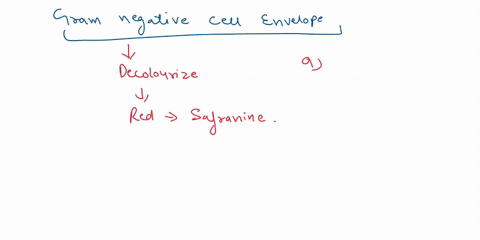 Gram negative cell Envelope
↓
Decolourize
a)
↓
Red → Safranine.